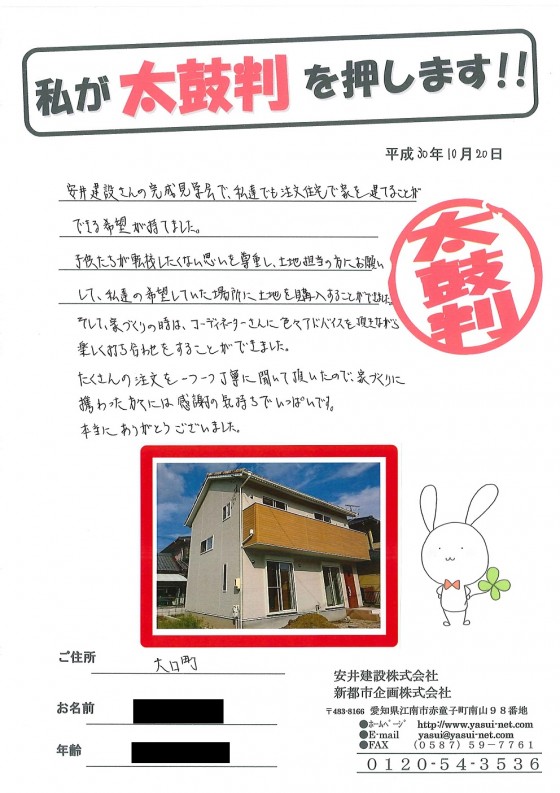 私が太鼓判を押します!!
平成30年10月20日
安井建設さんの完成見学会で、私達でも注文住宅で家を建てることが
できる希望が持てました。
子供たちが転校したくない思いを尊重し、土地担当の方にお願い
して、私達の希望していた場所に土地を購入することができました。
そして、家づくりの時は、コーディネーターさんに色々アドバイスを頂きながら
楽しく打ち合わせをすることができました。
たくさんの注文を一つ一つ丁寧に聞いて頂いたので、家づくりに
携わった方々には感謝の気持ちでいっぱいです。
本当にありがとうございました。
太鼓判
ご住所 大口町
お名前
年齢
安井建設株式会社
新都市企画株式会社
〒483-8166 愛知県江南市赤童子町南山98番地
●ホームページ http://www.yasui-net.com
●E-mail yasui@yasui-net.com
●FAX (0587)59-7761
0120-54-3536